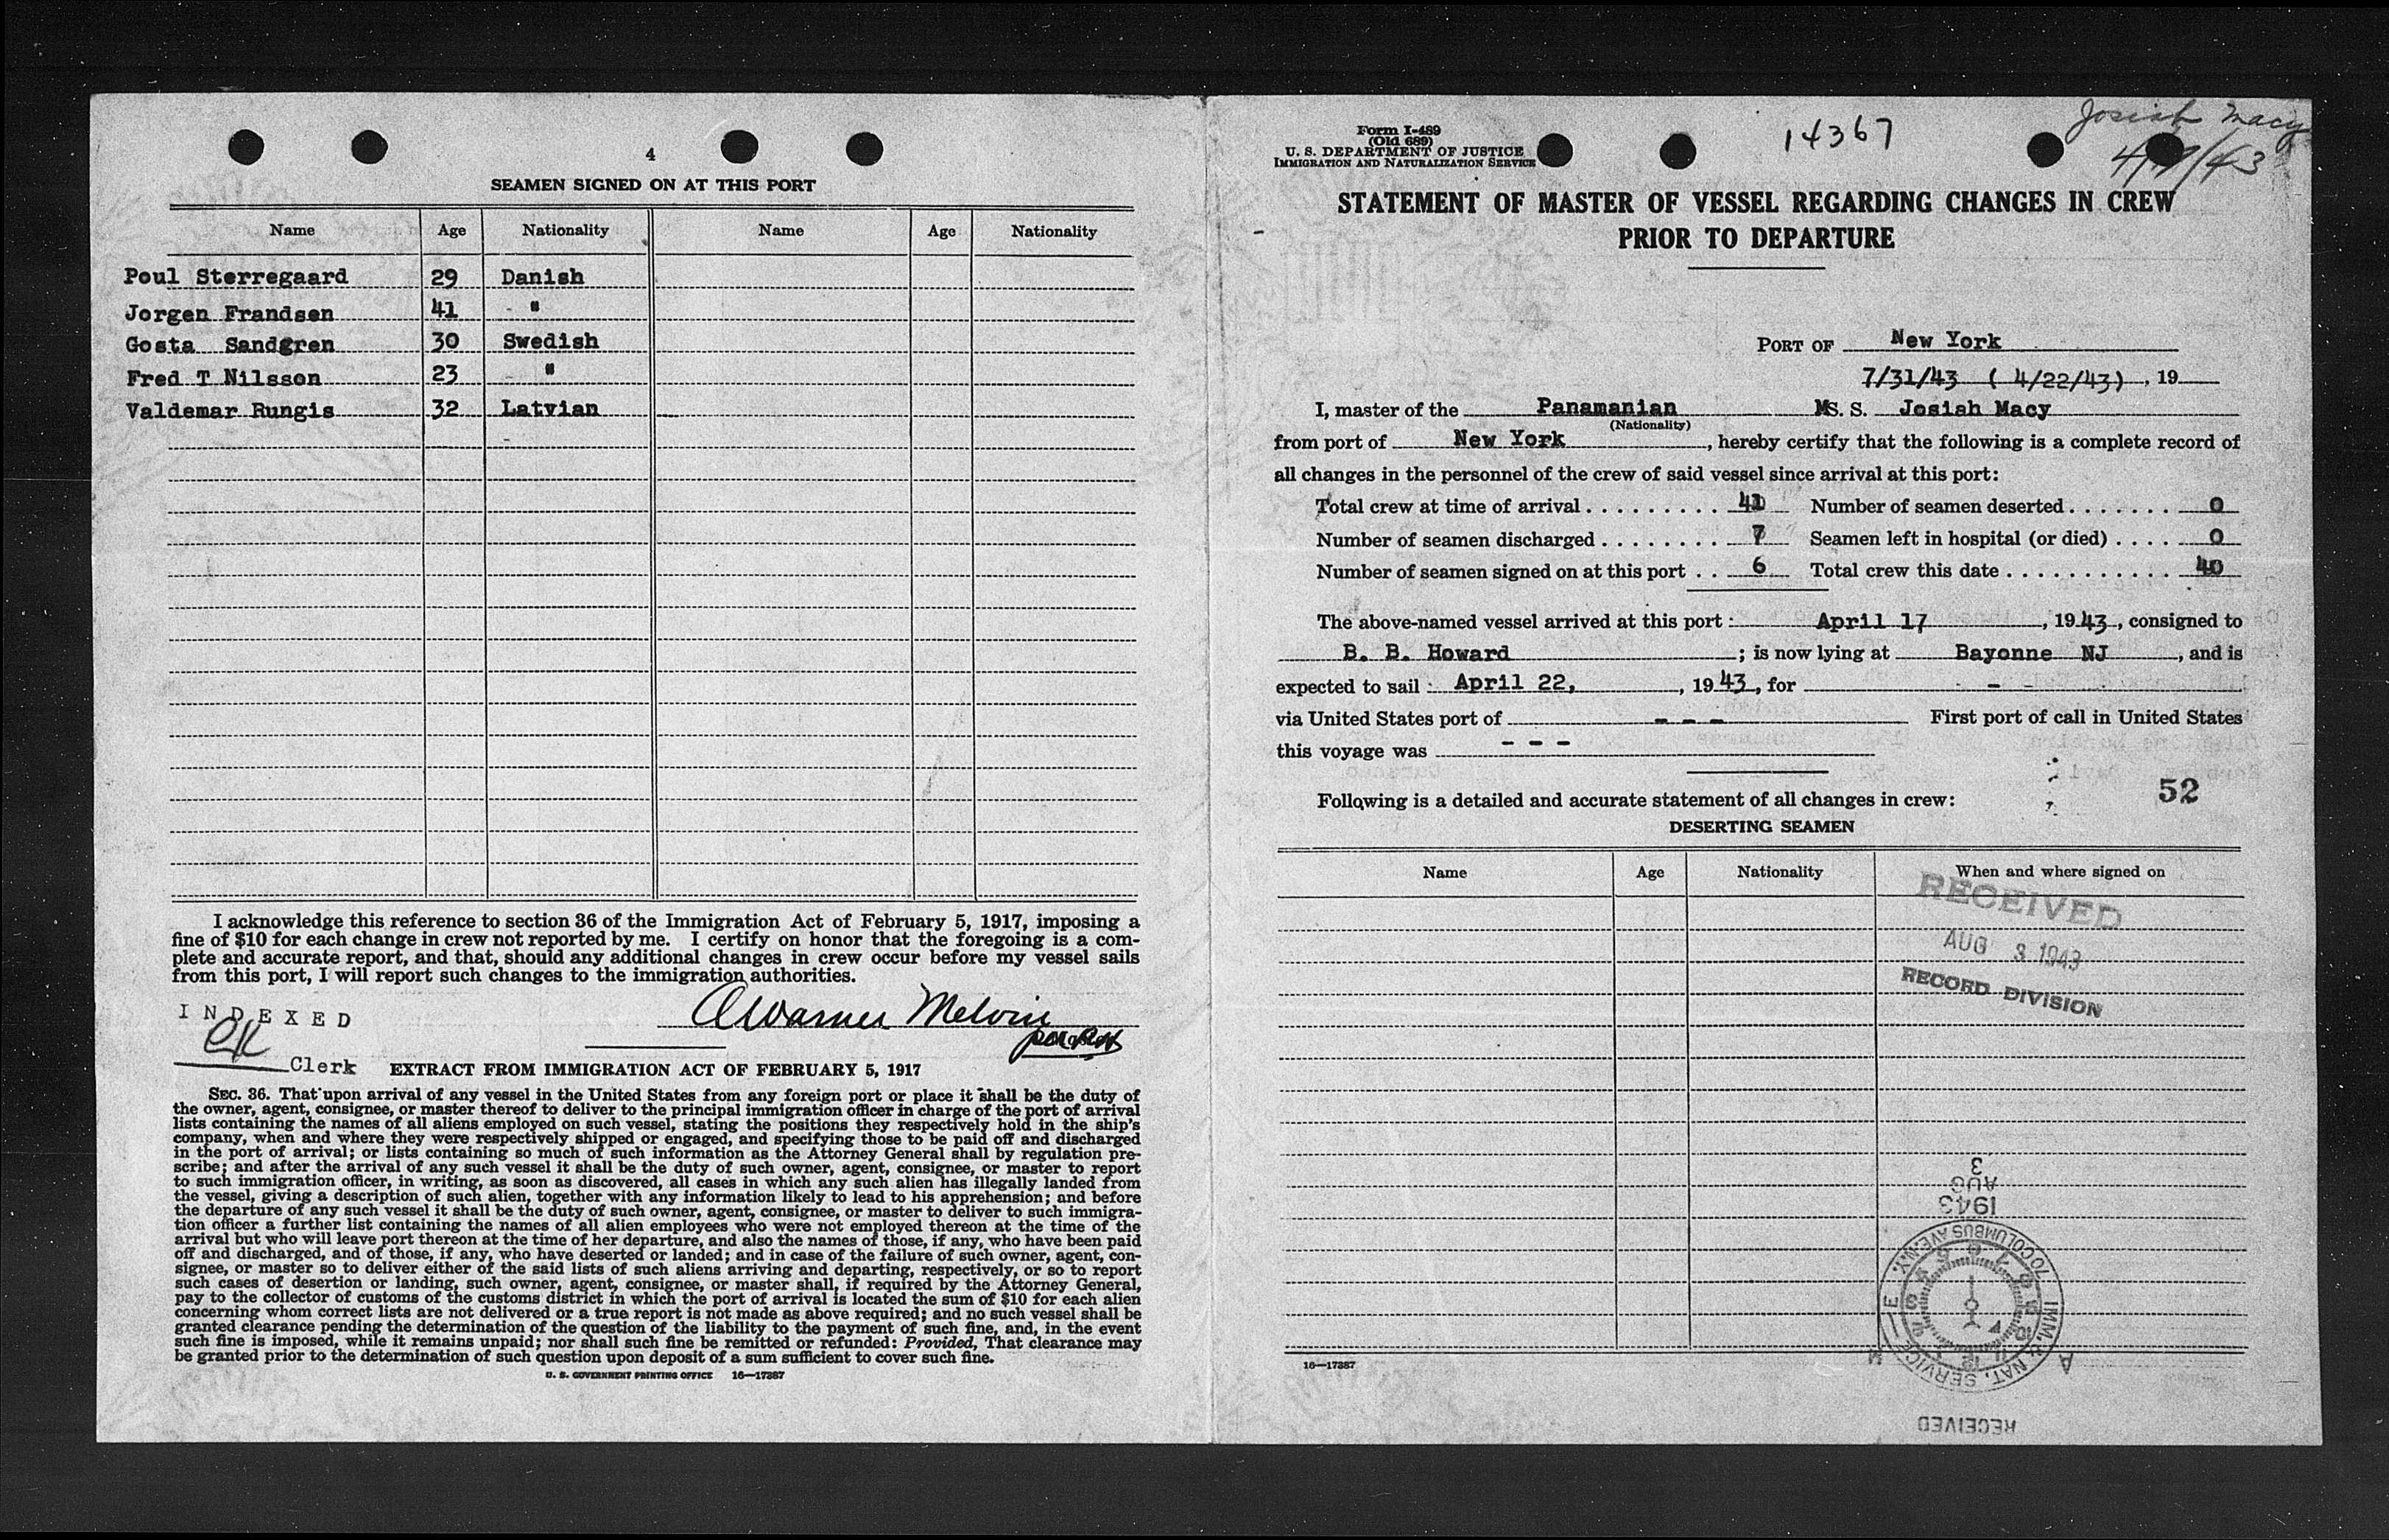 4
SEAMEN SIGNED ON AT THIS PORT
Name Age Nationality Name Age Nationality
Poul Sterregaard 29 Danish
Jorgen Frandsen 41 "
Gosta Sandgren 30 Swedish
Fred T Nilsson 23 "
Valdemar Rungis 32 Latvian
I acknowledge this reference to section 36 of the Immigration Act of February 5, 1917, imposing a
fine of $10 for each change in crew not reported by me. I certify on honor that the foregoing is a com-
plete and accurate report, and that, should any additional changes in crew occur before my vessel sails
from this port, I will report such changes to the immigration authorities.
INDEXED
Warner Melvin
Clerk
EXTRACT FROM IMMIGRATION ACT OF FEBRUARY 5, 1917
SEC. 36. That upon arrival of any vessel in the United States from any foreign port or place it shall be the duty of
the owner, agent, consignee, or master thereof to deliver to the principal immigration officer in charge of the port of arrival
lists containing the names of all aliens employed on such vessel, stating the positions they respectively hold in the ship's
company, when and where they were respectively shipped or engaged, and specifying those to be paid off and discharged
in the port of arrival; or lists containing so much of such information as the Attorney General shall by regulation pre-
scribe; and after the arrival of any such vessel it shall be the duty of such owner, agent, consignee, or master to report
to such immigration officer, in writing, as soon as discovered, all cases in which any such alien has illegally landed from
the vessel, giving a description of such alien, together with any information likely to lead to his apprehension; and before
the departure of any such vessel it shall be the duty of such owner, agent, consignee, or master to deliver to such immigra-
tion officer a further list containing the names of all alien employees who were not employed thereon at the time of the
arrival but who will leave port thereon at the time of her departure, and also the names of those, if any, who have been paid
off and discharged, and of those, if any, who have deserted or landed; and in case of the failure of such owner, agent, con-
signee, or master so to deliver either of the said lists of such aliens arriving and departing, respectively, or so to report
such cases of desertion or landing, such owner, agent, consignee, or master shall, if required by the Attorney General,
pay to the collector of customs of the customs district in which the port of arrival is located the sum of $10 for each alien
concerning whom correct lists are not delivered or a true report is not made as above required; and no such vessel shall be
granted clearance pending the determination of the question of the liability to the payment of such fine, and, in the event
such fine is imposed, while it remains unpaid; nor shall such fine be remitted or refunded: Provided, That clearance may
be granted prior to the determination of such question upon deposit of a sum sufficient to cover such fine.
U. S. GOVERNMENT PRINTING OFFICE 16—17387
Form I-489
(Old 689)
U. S. DEPARTMENT OF JUSTICE
IMMIGRATION AND NATURALIZATION SERVICE
14367
Josiah Macy
STATEMENT OF MASTER OF VESSEL REGARDING CHANGES IN CREW
PRIOR TO DEPARTURE
PORT OF New York
7/31/43 ( 4/22/43) , 19
I, master of the Panamanian MS. S. Josiah Macy
(Nationality)
from port of New York , hereby certify that the following is a complete record of
all changes in the personnel of the crew of said vessel since arrival at this port:
Total crew at time of arrival . . . . . . . . . 41 Number of seamen deserted . . . . . . . 0
Number of seamen discharged . . . . . . . . 7 Seamen left in hospital (or died) . . . . 0
Number of seamen signed on at this port . . 6 Total crew this date . . . . . . . . . . . . 40
The above-named vessel arrived at this port April 17 , 1943 , consigned to
B. B. Howard ; is now lying at Bayonne NJ , and is
expected to sail April 22, , 1943 , for - -
via United States port of - - - First port of call in United States
this voyage was - - -
52
Following is a detailed and accurate statement of all changes in crew:
DESERTING SEAMEN
Name Age Nationality When and where signed on
RECEIVED
AUG 3 1943
RECORD DIVISION
RECEIVED
IMM. & NAT. SERVICE
70 COLUMBUS AVE. N.Y.
1943
AUG
3
16—17387